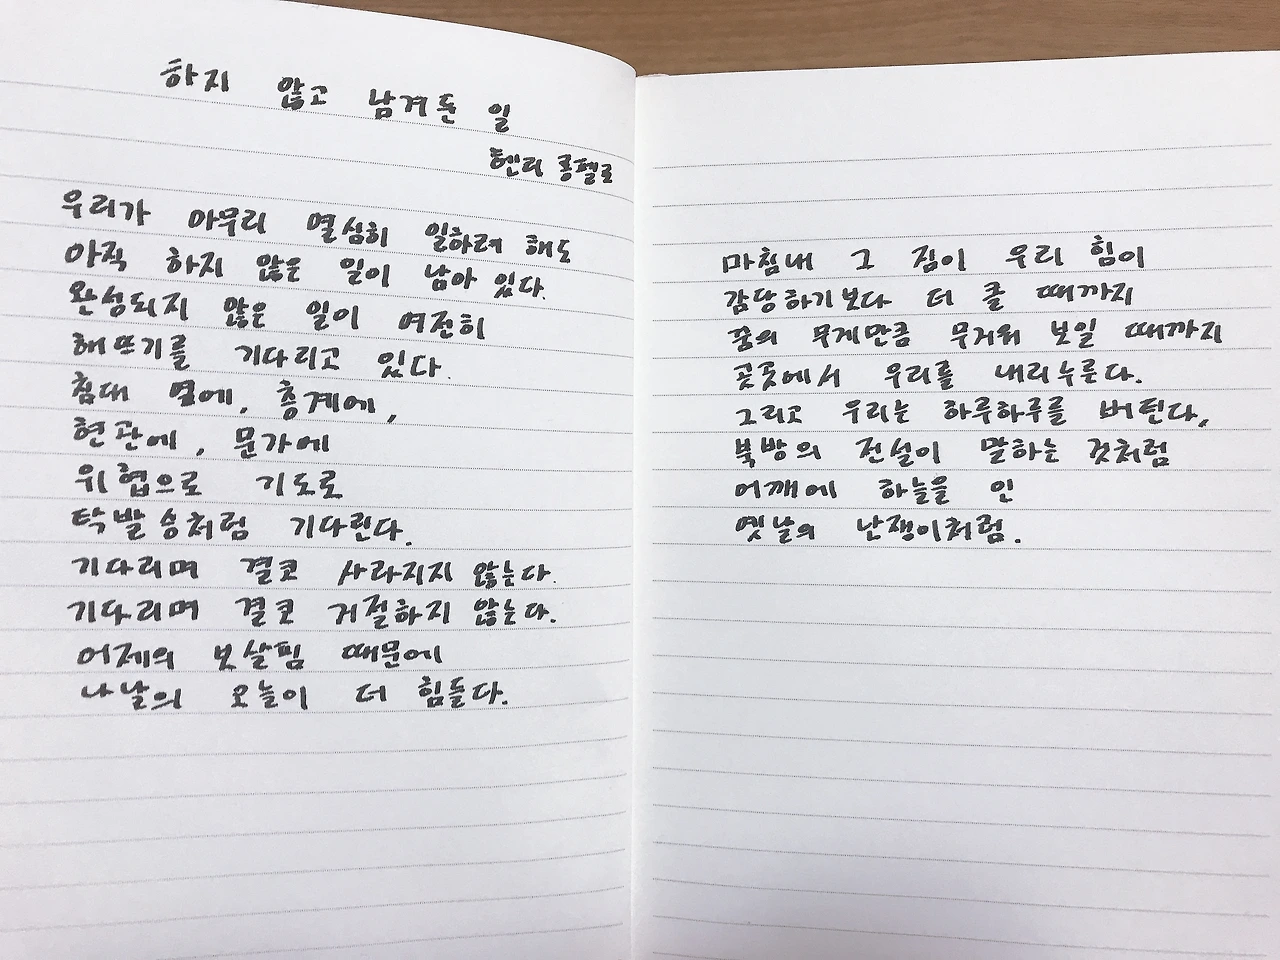 하지 않고 남겨둔 일
헨리 롱펠로
우리가 아무리 열심히 일하려 해도
아직 하지 않은 일이 남아 있다.
완성되지 않은 일이 여전히
해뜨기를 기다리고 있다.
침대 옆에, 층계에,
현관에, 문가에
위협으로 기도로
탁발승처럼 기다린다.
기다리며 결코 사라지지 않는다.
기다리며 결코 거절하지 않는다.
어제의 보살핌 때문에
나날의 오늘이 더 힘들다.
마침내 그 짐이 우리 힘이
감당하기보다 더 클 때까지
꿈의 무게만큼 무거워 보일 때까지
곳곳에서 우리를 내리누른다.
그리고 우리는 하루하루를 버틴다,
북방의 전설이 말하는 것처럼
어깨에 하늘을 인
옛날의 난쟁이처럼.